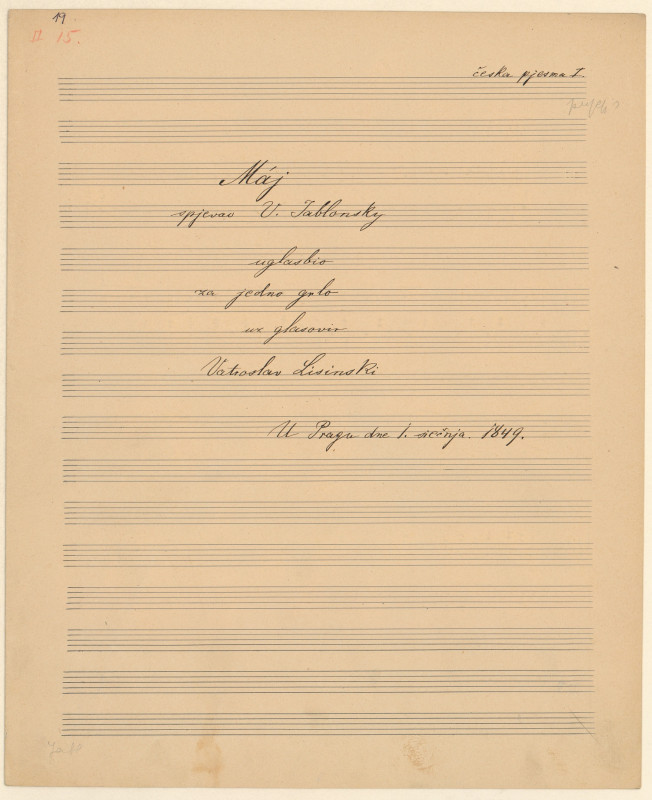 19.
II 15.
češka pjesma I.
Máj
spjevao V. Jablonsky
uglasbio
za jedno grlo
uz glasovir
Vatroslav Lisinski
U Pragu dne 1. siečnja. 1849.